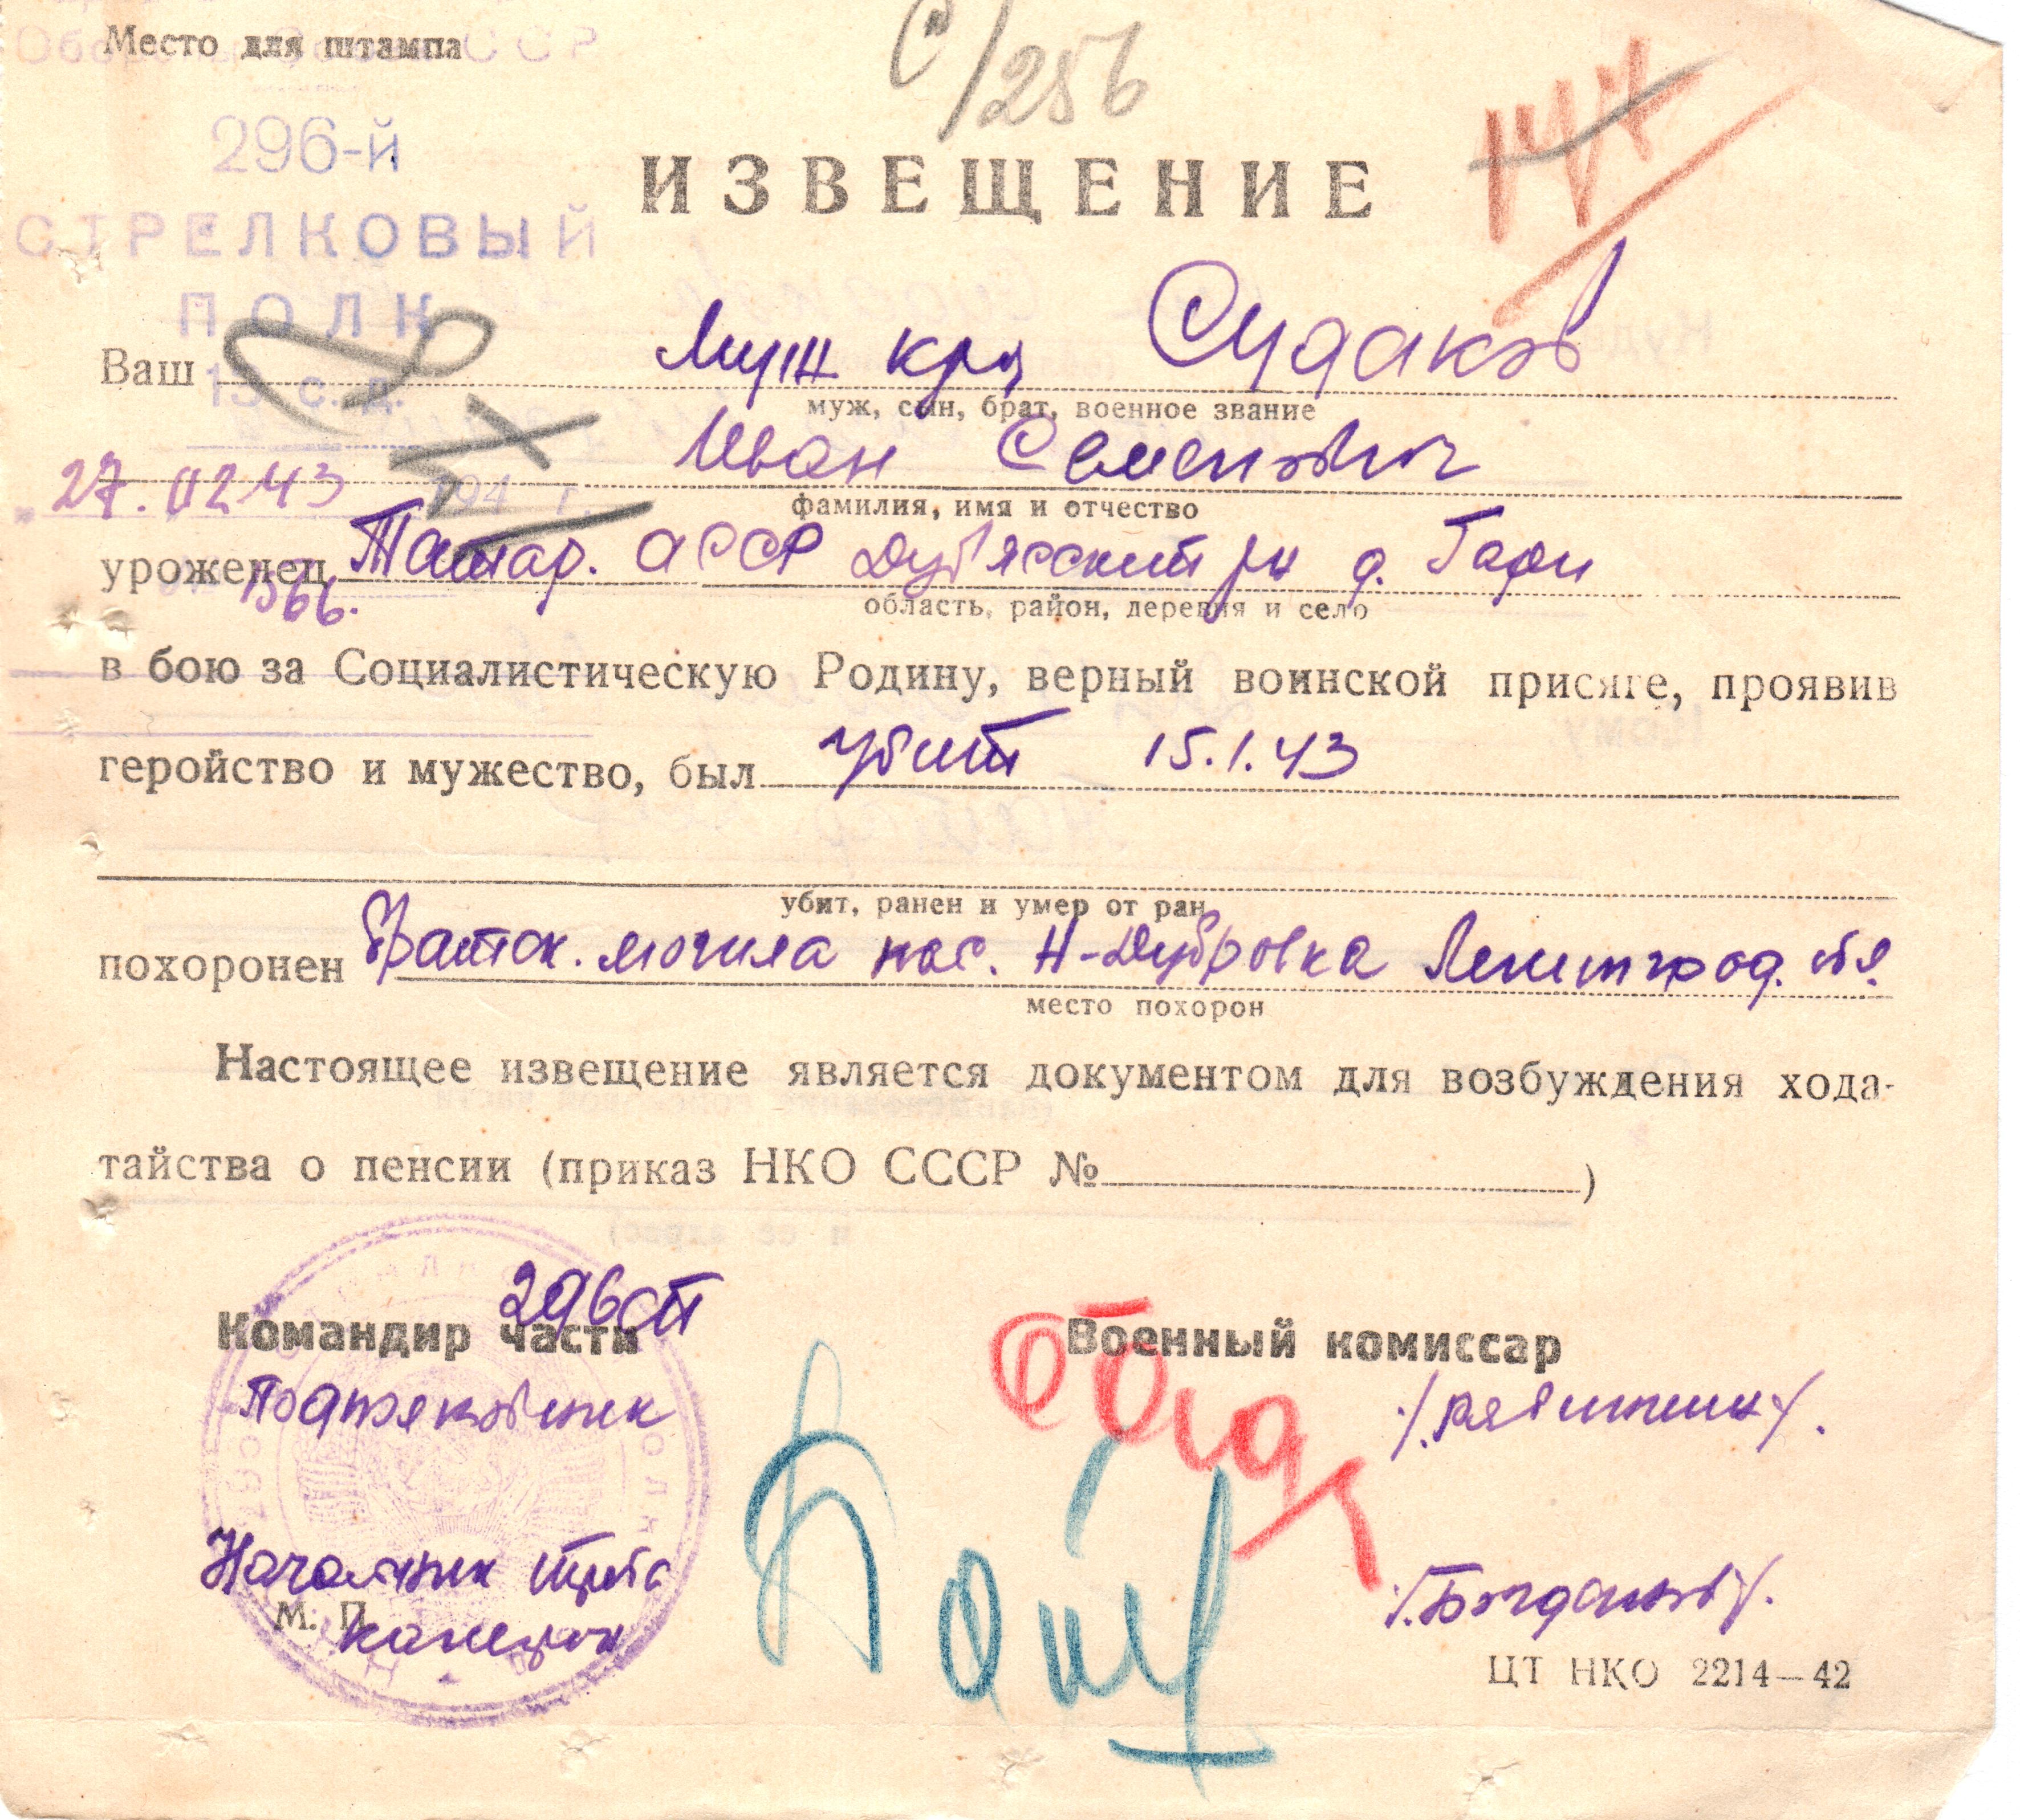 Место для штампа
С/256
296-й
СТРЕЛКОВЫЙ
ПОЛК
13 с. д.
27.02.43 194 г.
1366.
ИЗВЕЩЕНИЕ
Ваш муж кр-ц Судаков
муж, сын, брат, военное звание
Иван Семенович
фамилия, имя и отчество
уроженец Татар. АССР Дубясский рн д. Гари
область, район, деревня и село
в бою за Социалистическую Родину, верный воинской присяге, проявив
геройство и мужество, был убит 15.1.43
убит, ранен и умер от ран
похоронен Братск. могила пос. Н-Дубровка Ленинград. обл.
место похорон
Настоящее извещение является документом для возбуждения хода-
тайства о пенсии (приказ НКО СССР № )
296 СП
Командир части Военный комиссар
Подполковник
Начальник штаба
М. П.
капитан
/Богданов/.
ЦТ НКО 2214—42